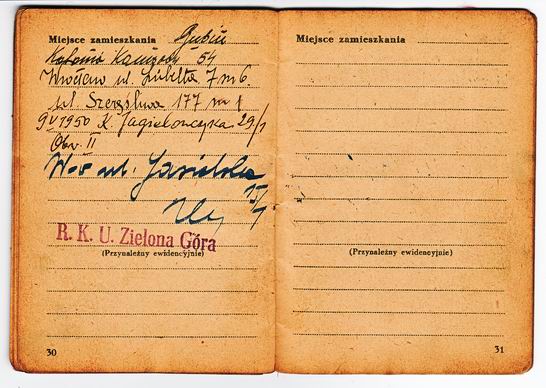 Miejsce zamieszkania Gubin
54
Wrocław ul. Lubelska 7 m 6.
ul. Szczęśliwa 177 m 1
9 V 1950 K. Jagielończyka 29/1
Obw. II
W-w ul. Jasielska
15/7
R. K. U. Zielona Góra
(Przynależny ewidencyjnie)
30
Miejsce zamieszkania
(Przynależny ewidencyjnie)
31